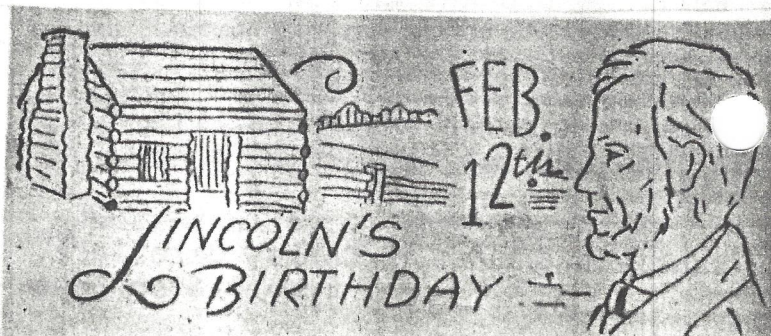 FEB.
12th
LINCOLN'S
BIRTHDAY